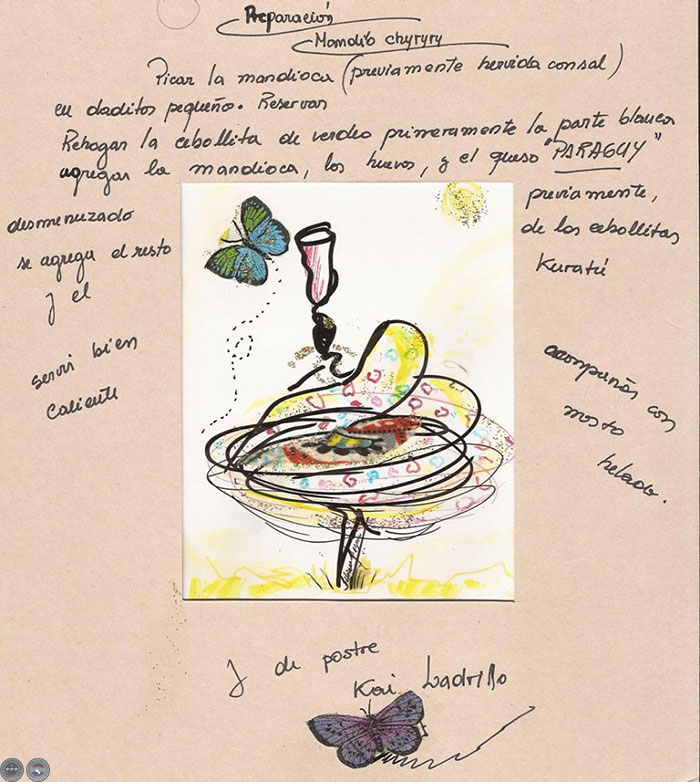 Preparación
Mandi'o chyryry
Picar la mandioca (previamente hervida con sal)
en daditos pequeño. Reservar
Rehogar la cebollita de verdeo primeramente la parte blanca
agregar la mandioca, los huevos, y el queso "PARAGUY"
desmenuzado previamente,
se agrega el resto de las cebollitas
y el Kuratú
servi bien
caliente
acompañás con
mosto
helado.
y de postre
Kai Ladrillo